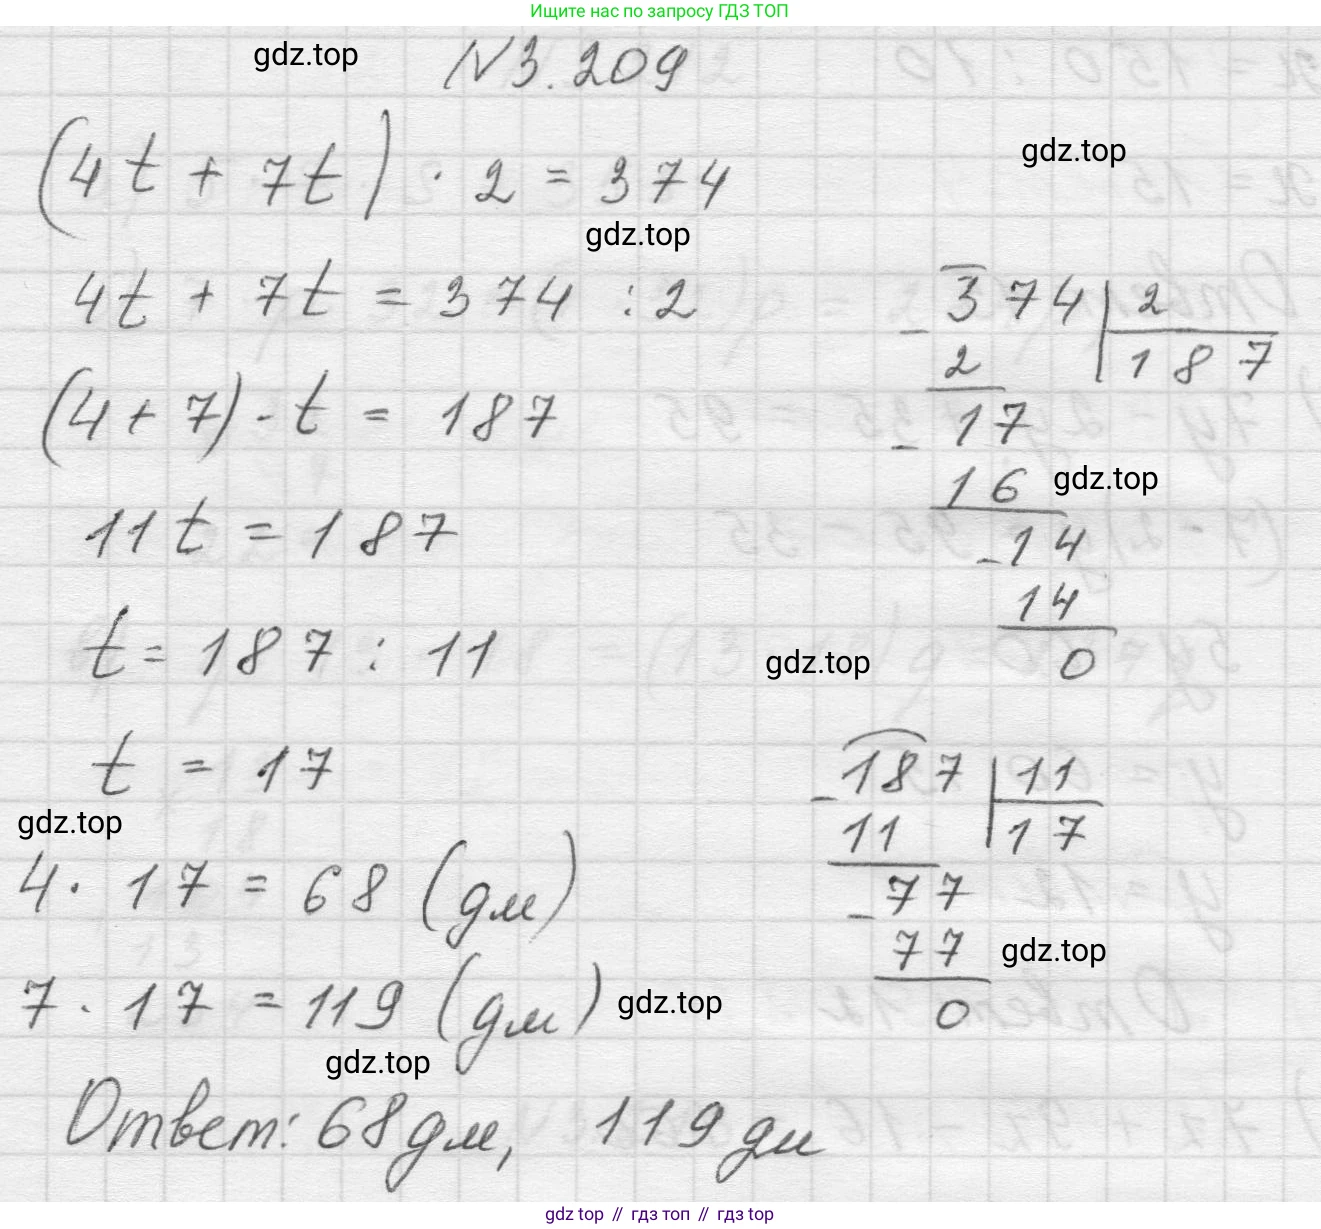 Ищите нас по запросу ГДЗ ТОП
gdz.top
N 3.209
(4t + 7t) · 2 = 374
gdz.top
gdz.top
4t + 7t = 374 : 2
(4 + 7) · t = 187
11t = 187
t = 187 : 11
t = 17
374 | 2
- 2 | 187
- 17
16
gdz.top
- 14
14
0
gdz.top
- 187 | 11
11 | 17
- 77
77
0
gdz.top
gdz.top
4 · 17 = 68 (дм)
7 · 17 = 119 (дм)
gdz.top
gdz.top
Ответ: 68 дм, 119 дм
gdz top // гдз топ // гдз top